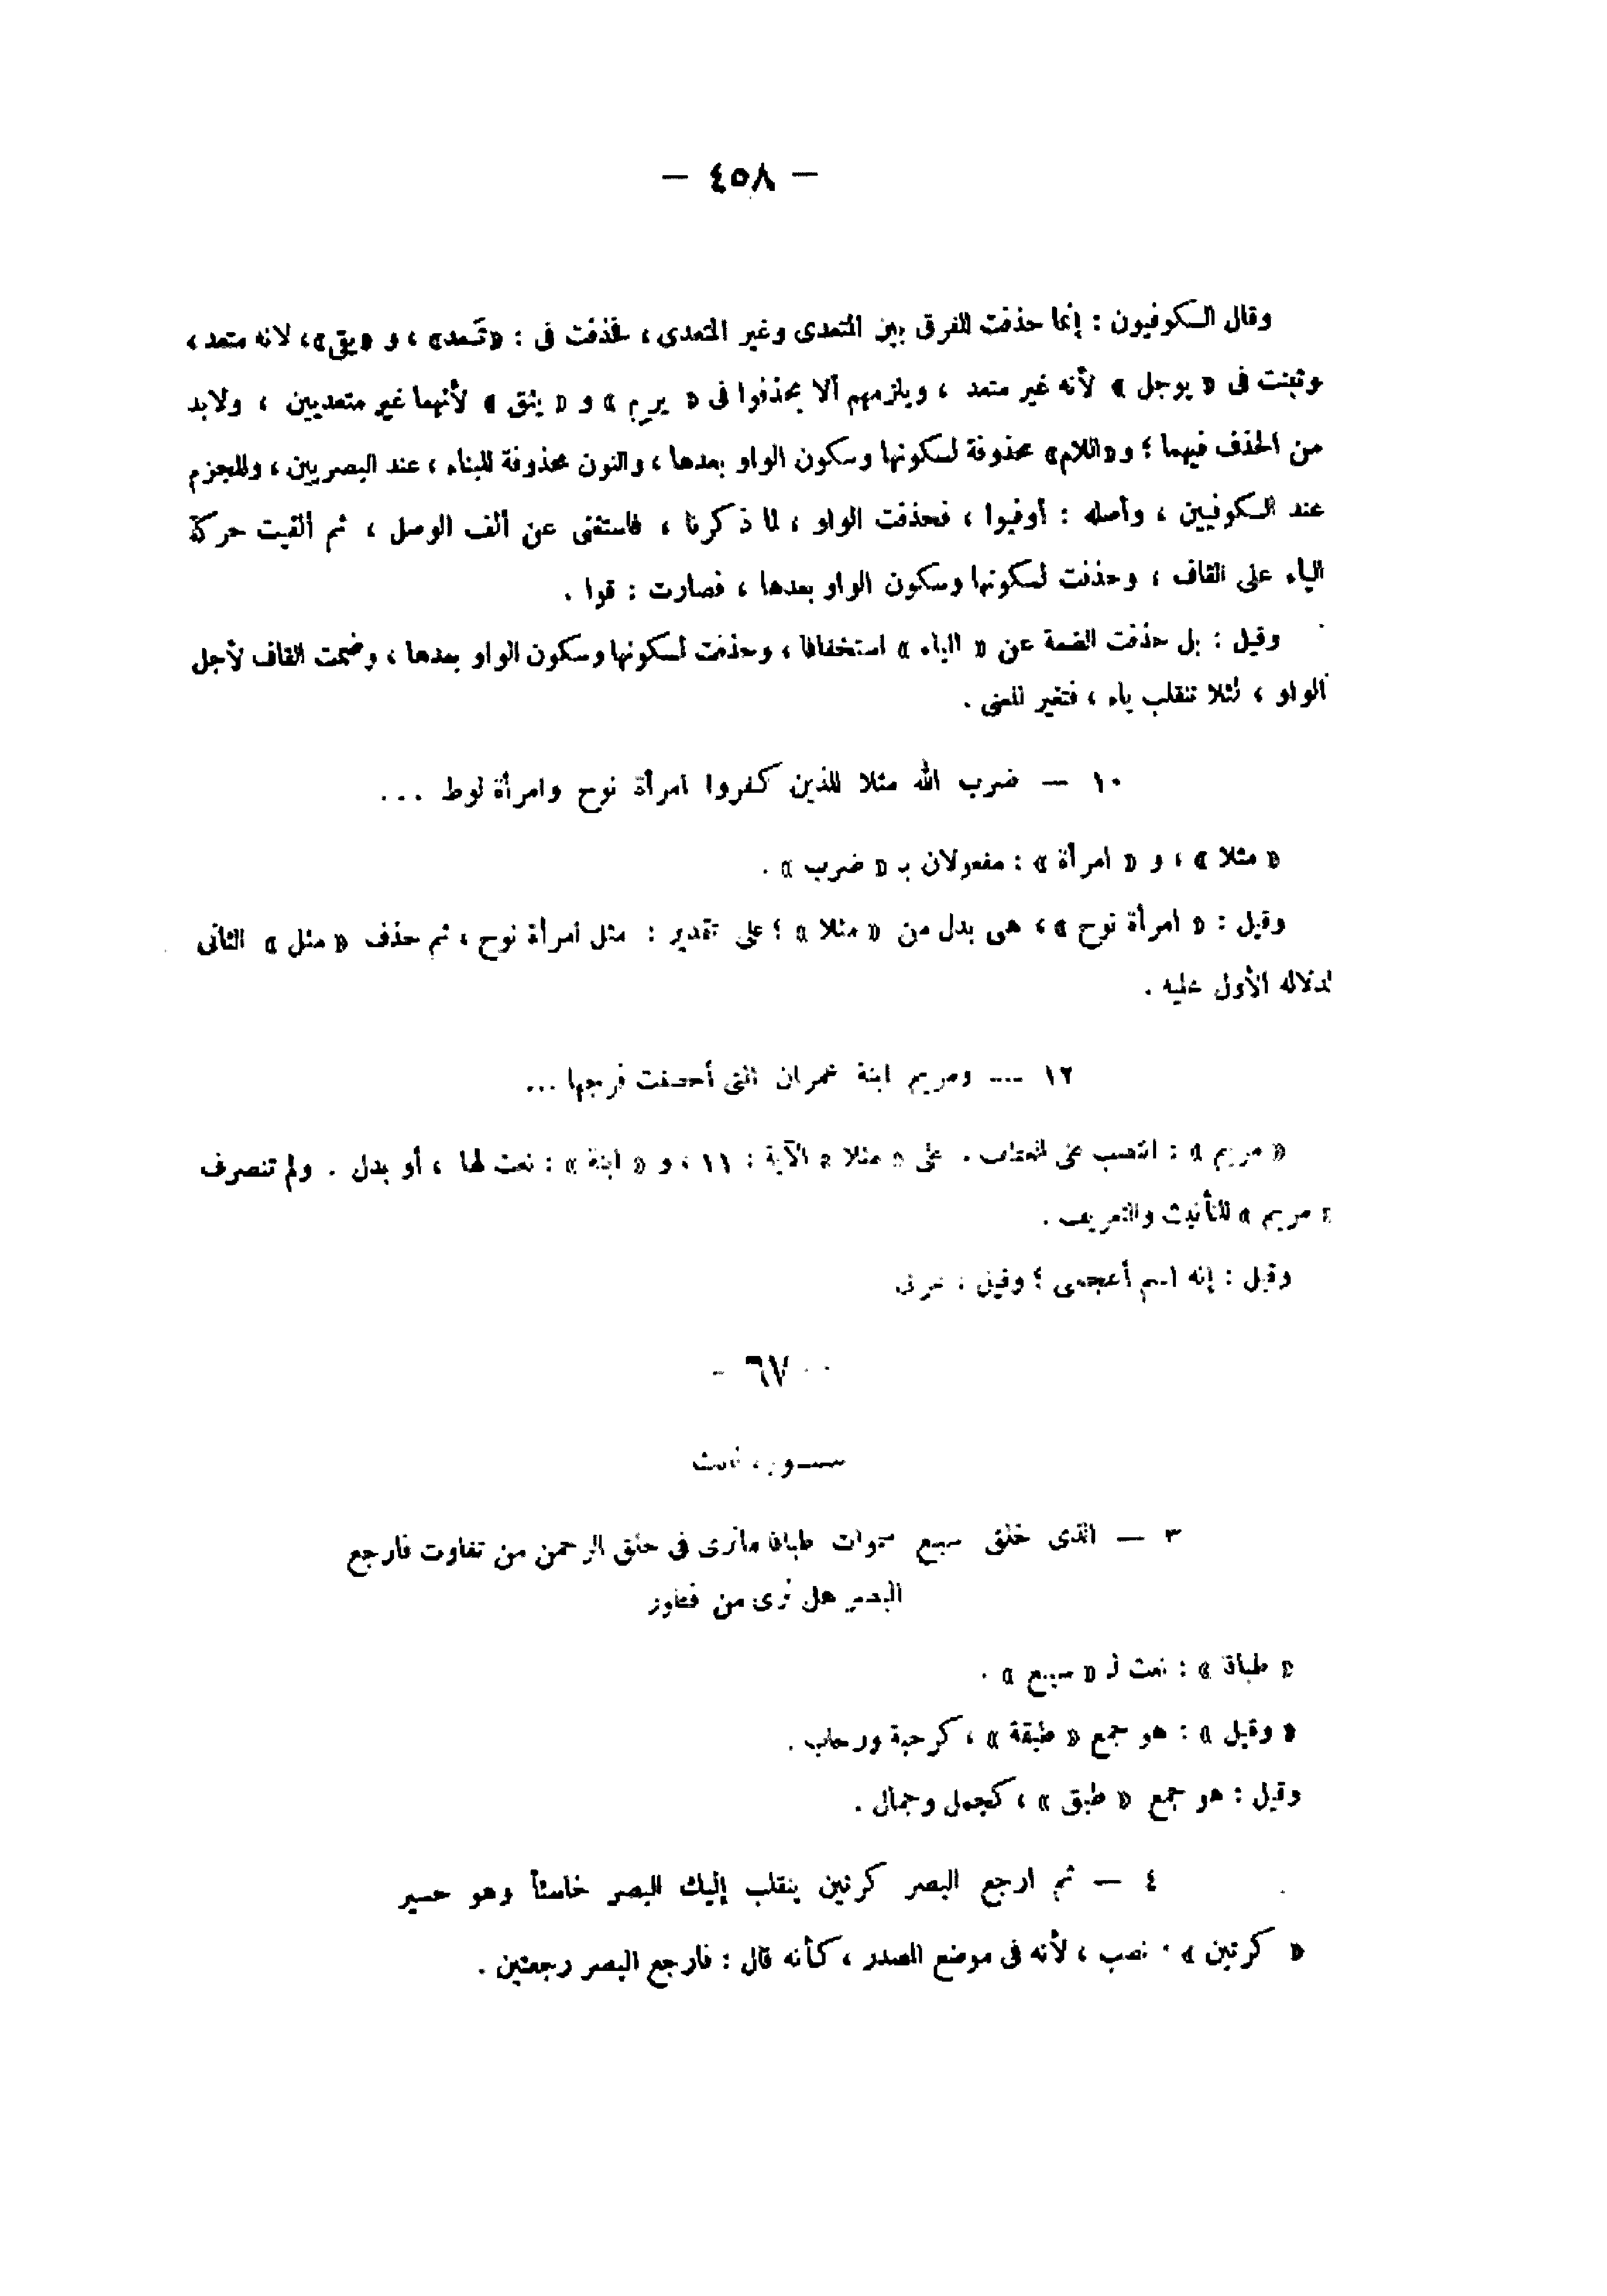 — ٤٥٨ —
وقال الكوفيون : إنما حذفت للفرق بين المتعدى وغير المتعدى ، فحذفت فى : «تَعد» ، و «يقى»، لأنه متعد ،
وثبتت فى « يوجل » لأنه غير متعد ، ويلزمهم ألا يحذفوا فى « يرم » و « يثق » لأنهما غير متعديين ، ولابد
من الحذف فيهما ؛ و«اللام» محذوفة لسكونها وسكون الواو بعدها ، والنون محذوفة للبناء ، عند البصريين ، وللجزم
عند الكوفيين ، وأصله : أوقيوا ، فحذفت الواو ، لما ذكرنا ، فاستغنى عن ألف الوصل ، ثم ألقيت حركة
الياء على القاف ، وحذفت لسكونها وسكون الواو بعدها ، فصارت : قوا .
وقيل : بل حذفت الضمة عن « الياء » استخفافا ، وحذفت لسكونها وسكون الواو بعدها ، وضمت القاف لأجل
الواو ، لئلا تنقلب ياء ، فتغير المعنى .
١٠ — ضرب الله مثلا للذين كفروا امرأة نوح وامرأة لوط ...
« مثلا » ، و « امرأة » : مفعولان بـ « ضرب » .
وقيل : « امرأة نوح » ، هى بدل من « مثلا » ؛ على تقدير : مثل امرأة نوح ، ثم حذف « مثل » الثانى
لدلالة الأول عليه .
١٢ — ومريم ابنة عمران التى أحصنت فرجها ...
« مريم » : انتصب على العطف . على « مثلا » الآية : ١١ ، و « ابنة » : نعت لها ، أو بدل . ولم تنصرف
« مريم » للتأنيث والتعريف .
وقيل : إنه اسم أعجمى ؛ وقيل : عربى
— ٦٧ —
ســورة الملك
٣ — الذى خلق سبع سموات طباقا ماترى فى خلق الرحمن من تفاوت فارجع
البصر هل ترى من فطور
« طباقا » : نعت لـ « سبع » .
« وقيل » : هو جمع « طبقة » ، كرحبة ورحاب .
وقيل : هو جمع « طبق » ، كجمل وجمال .
٤ — ثم ارجع البصر كرتين ينقلب إليك البصر خاسئاً وهو حسير
« كرتين » : نصب ، لأنه فى موضع المصدر ، كأنه قال : فارجع البصر رجعتين .